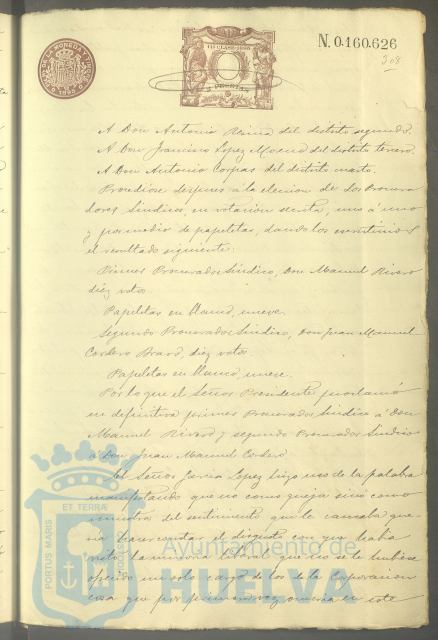 N. 0.160.626
308
A Don Antonio Reina del distrito segundo.
A Don Francisco Lopez Moreno del distrito tercero.
A Don Antonio Corpas del distrito cuarto.
Procediose despues á la eleccion de dos Procura
dores Sindicos, en votacion secreta, uno á uno
y por medio de papeletas, dando los escrutinios
el resultado siguiente:
Primer Procurador Sindico, Don Manuel Rivero
diez votos
Papeletas en blanco, nueve.
Segundo Procurador Sindico, Don Juan Manuel
Cordero Bravo, diez votos
Papeletas en blanco, nueve.
Por lo que el Señor Presidente proclamó
en definitiva primer Procurador Sindico á Don
Manuel Rivero y segundo Procurador Sindico
á Don Juan Manuel Cordero
El Señor Garcia Lopez hizo uso de la palabra
manifestando que no como queja sino como
muestra del sentimiento que le causaba
el disgusto con que habia
visto la minoria que no se le hubiese
ofrecido un solo cargo de los de la Corporacion
cosa que por primera vez ocurria en este
ET TERRA
PORTUS MARIS
Ayuntamiento de
HUELVA